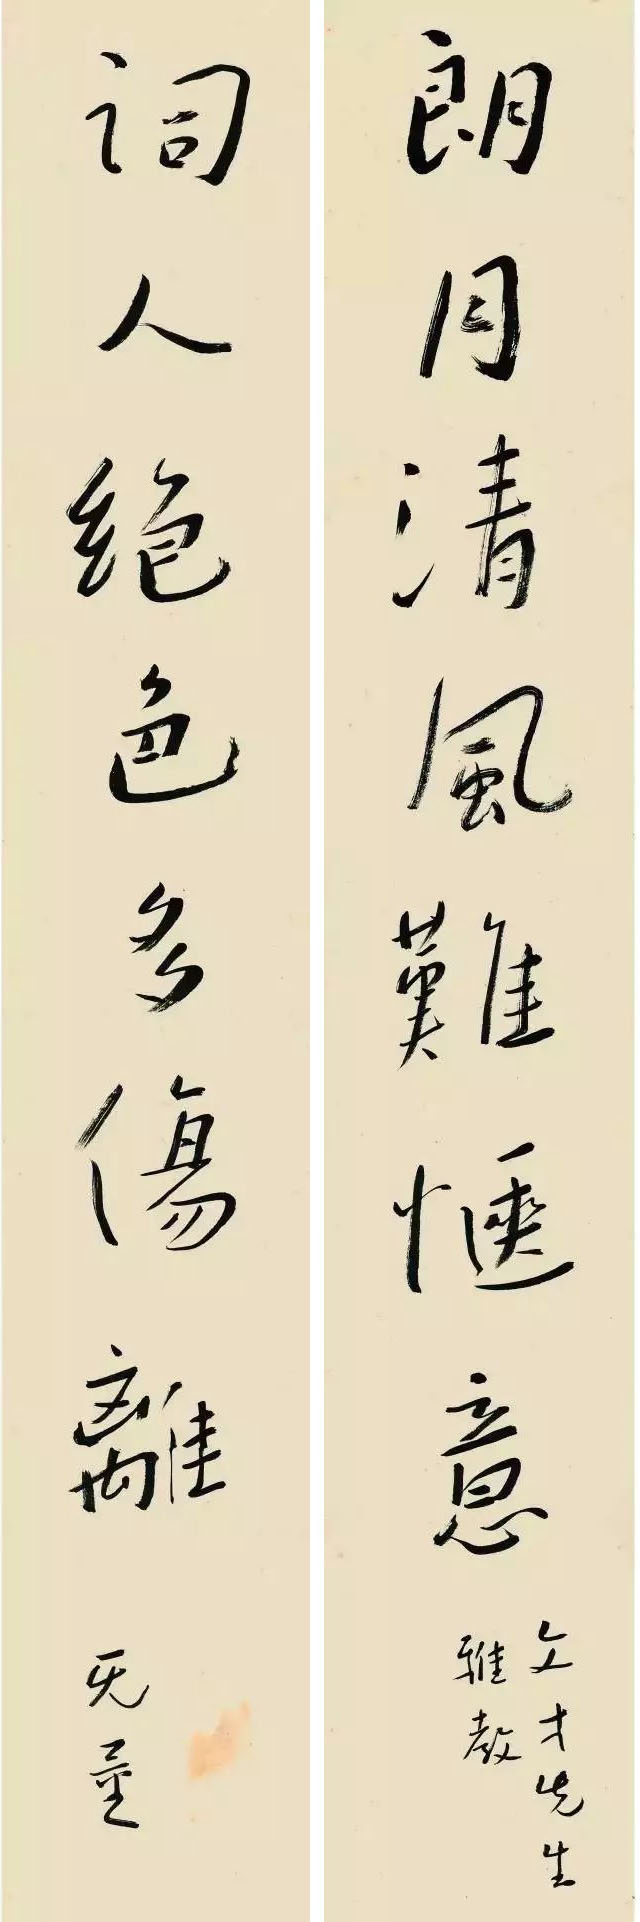 朗月清風難愜意
文才先生
雅教
詞人絕色多傷離
无量